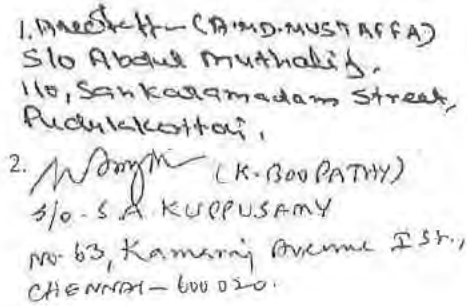 1. (A.MD.MUSTAFFA)
S/o Abdul Muthalif,
110, Sankaramadam Street,
Pudukkottai,
2. (K. BOOPATHY)
S/o. S.A. KUPPUSAMY
NO. 63, Kamaraj Avenue I St.,
CHENNAI - 600 020.